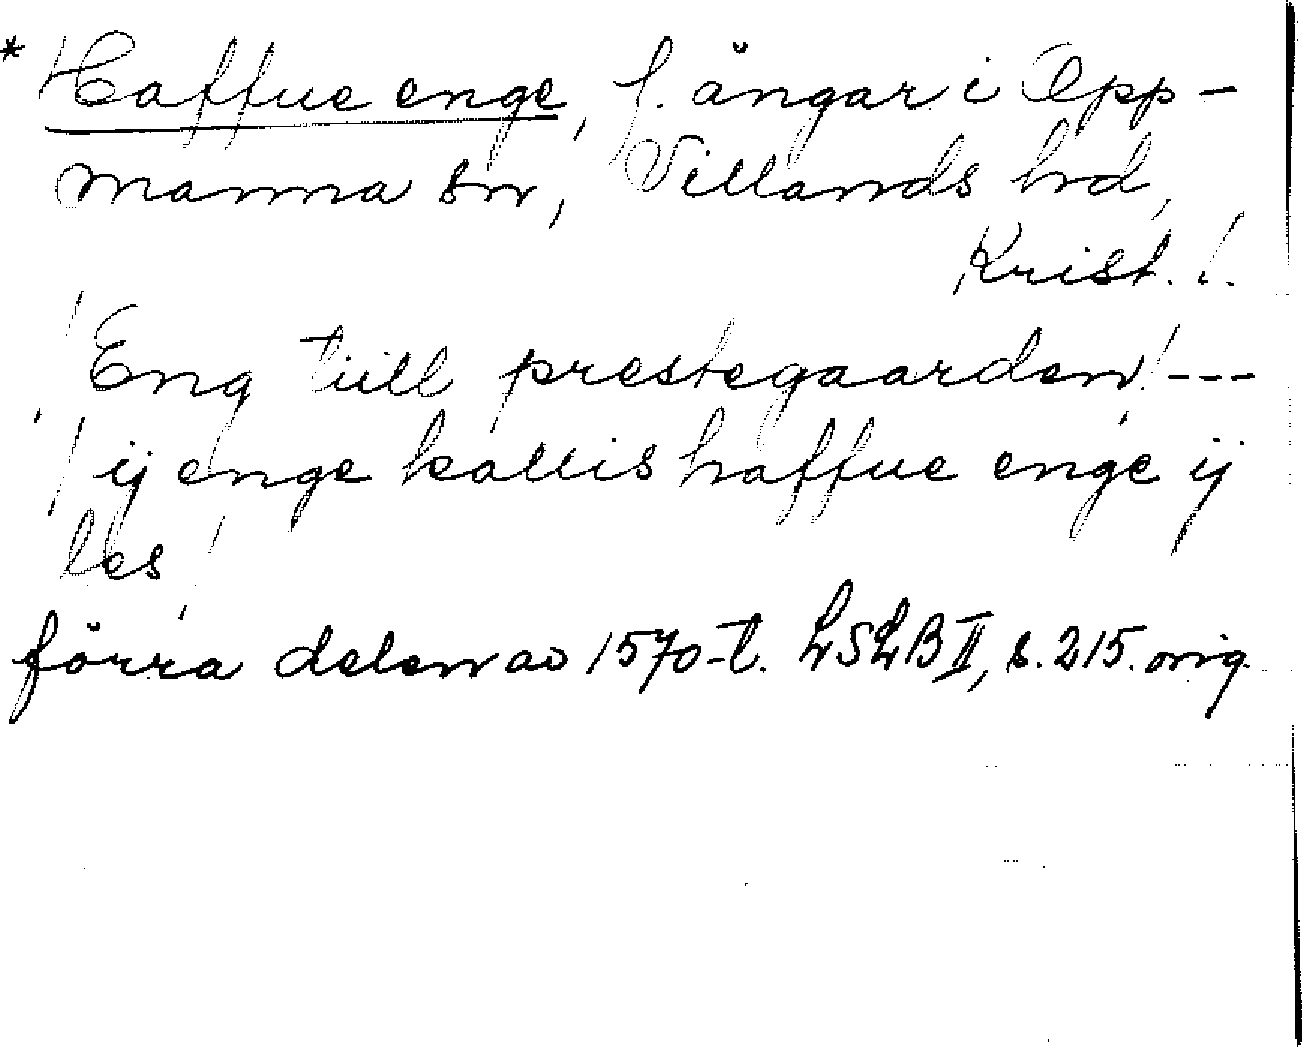 * Haffue enge, f. ängar i Opp-
manna sn, Villands hd,
Krist. l.
/Eng tiill prestegaarden/---
/ij enge kallis haffue enge ij
les/
förra delen av 1570-t. LSLB II, s. 215. orig.